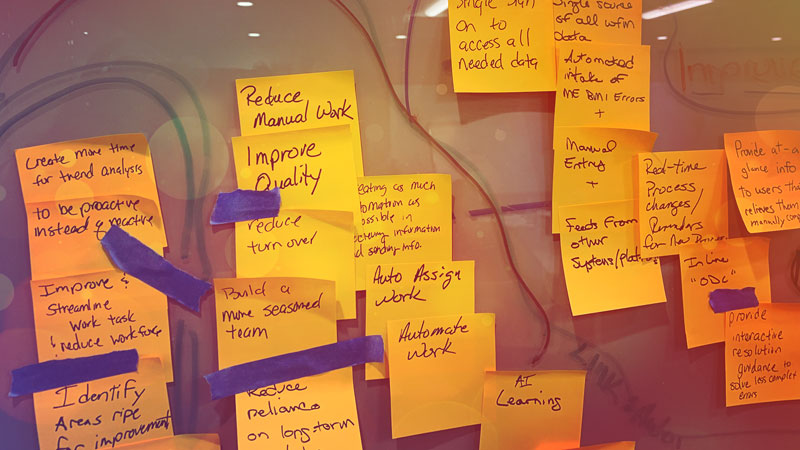 Create more time
for trend analysis
to be proactive
instead of reactive
Improve &
Streamline
work task
& reduce workforce
Identify
Areas ripe
for improvement
Reduce
Manual Work
Improve
Quality
reduce
turn over
Build a
more seasoned
team
Reduce
reliance
on long-term
as much
as
possible in
information
sending info.
Auto Assign
Work
Automate
Work
AI
Learning
Single sign
on to
access all
needed data
Single source
of all
data
Automated
intake of
ME BMI Errors
+
Manual
Entry
+
Feeds From
other
Systems/
Real-time
Process
changes/
for New
Provide at-a-
glance info
to users
relieves them
manually
InLine
"ODC"
provide
interactive
resolution
guidance to
solve less complex
errors